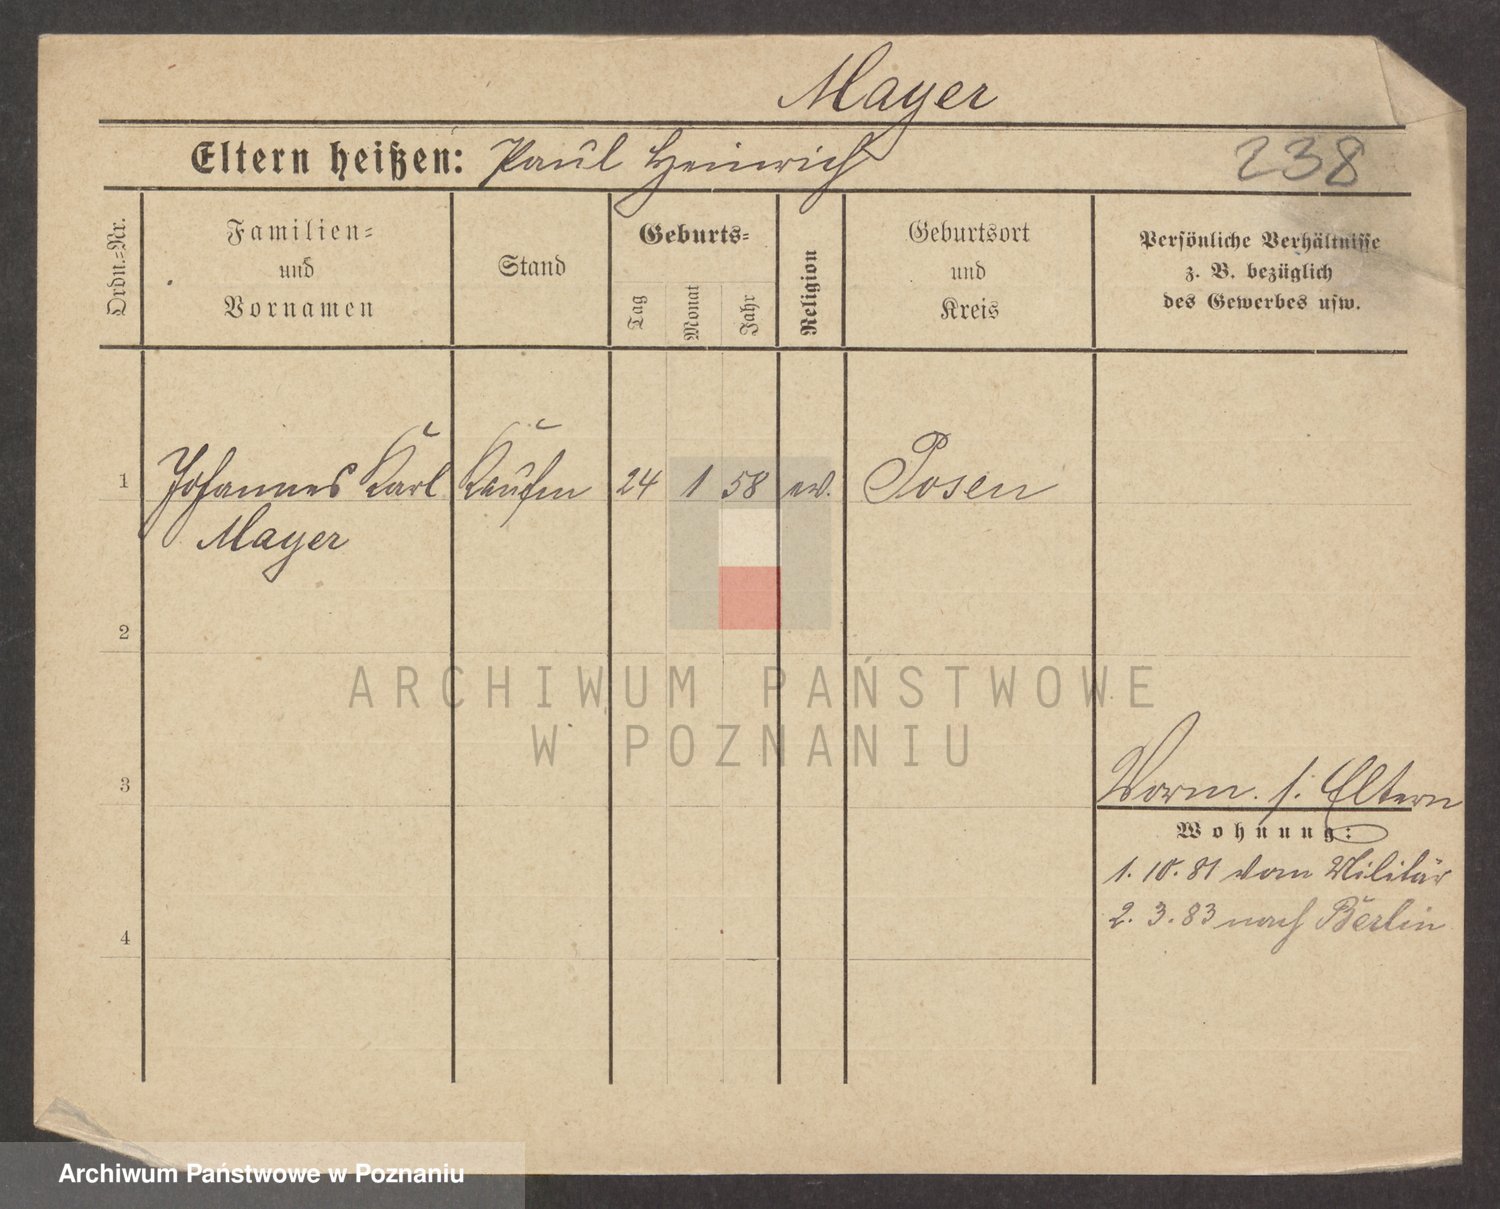 Mayer
Eltern heißen: Paul Heinrich
238
Ordn.-Nr.
Familien-
und
Vornamen
Stand
Geburts-
Tag
Monat
Jahr
Religion
Geburtsort
und
Kreis
Persönliche Verhältnisse
z. B. bezüglich
des Gewerbes usw.
1 Johannes Karl Kaufm 24 1 58 ev. Posen
Mayer
2
ARCHIWUM PAŃSTWOWE
W POZNANIU
3
Vorm. s. Eltern
Wohnung:
1. 10. 81 vom Militär
2. 3. 83 nach Berlin
4
Archiwum Państwowe w Poznaniu